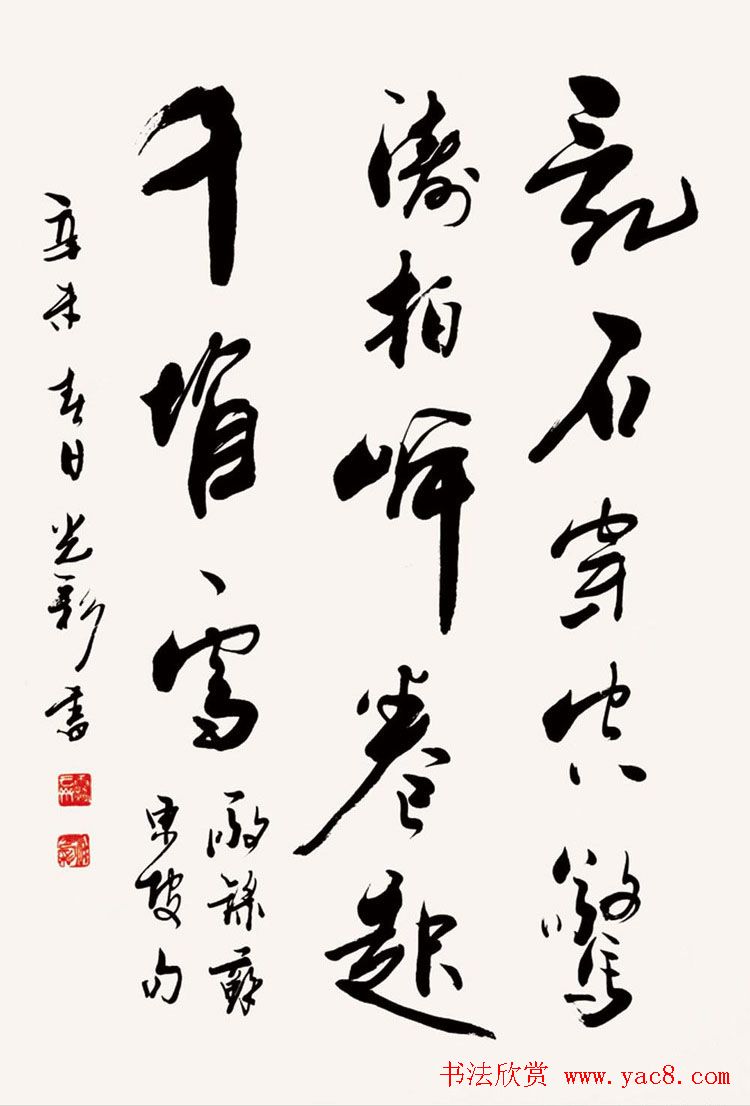 亂石穿空驚
濤拍岸卷起
千堆雪
敬錄蘇
東坡句
辛未春日光書
书法欣赏 www.yac8.com